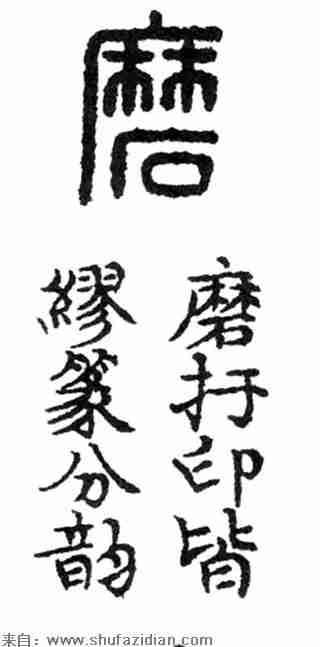 磨
磨扜印皆
繆篆分韵
来自：www.shufazidian.com